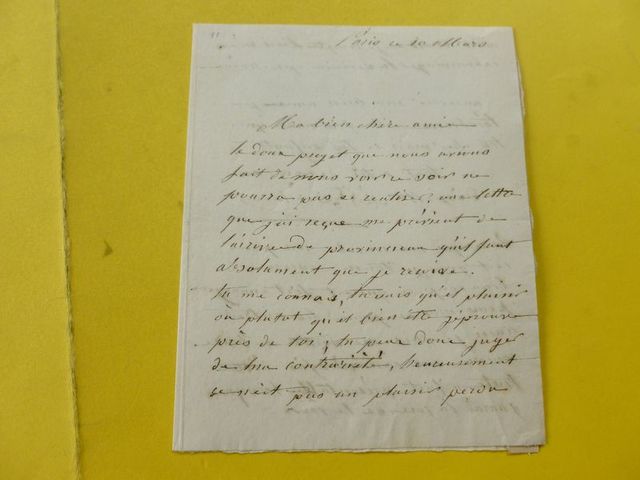 Paris ce 20 Mars
Ma bien chère amie
le doux projet que nous avions
fait de nous voir ne
pourra pas se realiser, une lettre
que j'ai reçue me prévient de
l'arivée de provinciaux qu'il faut
absolument que je reçoive.
tu me connais, tu sais quel plaisir
ou plutot quel bien être j'éprouve
près de toi, tu peux donc juger
de ma contrariété, heureusement
ce n'est pas un plaisir perdu